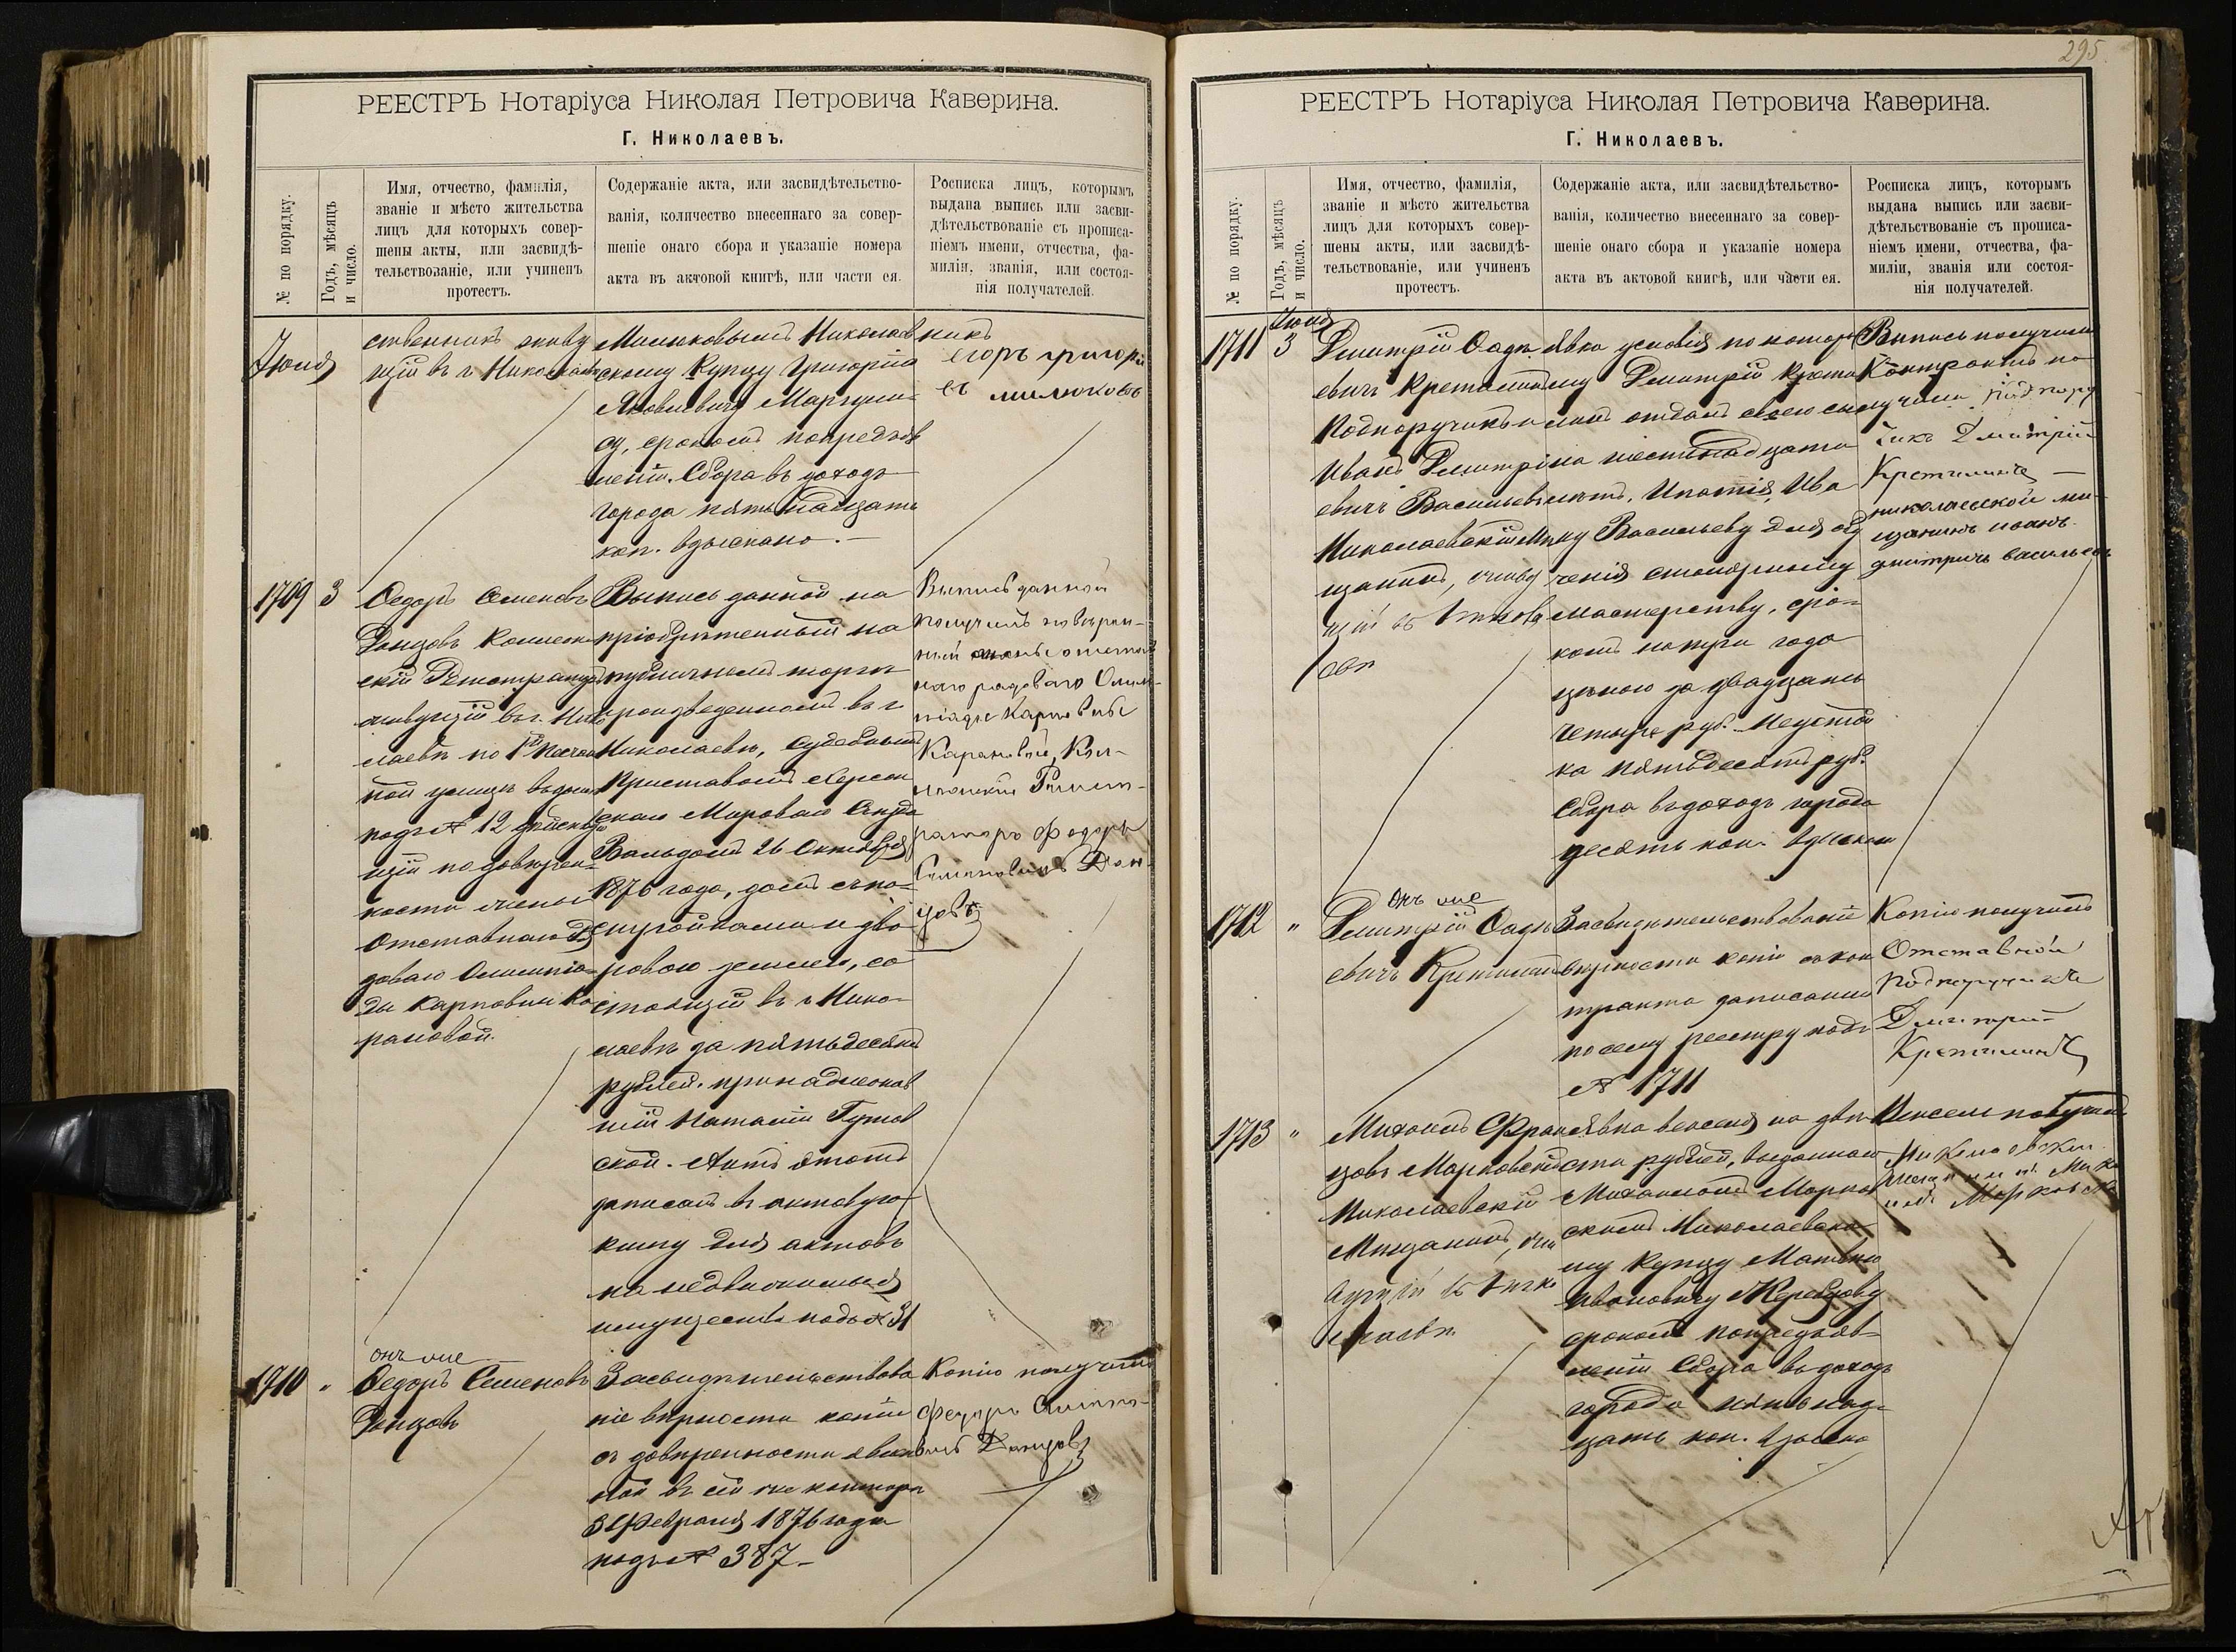 РЕЕСТРЪ Нотаріуса Николая Петровича Каверина.
Г. Николаевъ.
№ по порядку.
Годъ, мѣсяцъ
и число.
Имя, отчество, фамилія,
званіе и мѣсто жительства
лицъ для которыхъ совер-
шены акты, или засвидѣ-
тельствованіе, или учиненъ
протестъ.
Содержаніе акта, или засвидѣтельство-
ванія, количество внесеннаго за совер-
шеніе онаго сбора и указаніе номера
акта въ актовой книгѣ, или части ея.
Росписка лицъ, которымъ
выдана выпись или засви-
дѣтельствованіе съ прописа-
ніемъ имени, отчества, фа-
миліи, званія, или состоя-
нія получателей.
Іюня
ственникъ живу
щій въ г Николаевѣ
Милюковымъ Николаев
скому Купцу Григорію
Яковлевичу Маргули-
су, срокомъ попредъяв
леніи. Сбора въ доходъ
города пятьнадцать
коп. взыскано.-
никъ
егоръ григорі
евъ милюковъ
1709
3
Федоръ Семеновъ
Донцовъ Коллеж
скій Регистраторъ
живущій въ г. Нико
лаевѣ по 1й Песчан
ной улицѣ въ домѣ
подъ № 12 действую
щій по довѣрен-
ности жены
Отставнаго Ря
доваго Олимпіа-
ды Карповны Ка
рановой.
Выпись данной на
пріобрѣтенный на
публичномъ торгѣ
произведенномъ въ г
Николаевѣ, Судебнымъ
Приставомъ Херсон
скаго Мироваго Съезда
Вальдомъ 26 Октября
1876 года, домъ съ по-
стройками и дво-
ровою землею, со
стоящій въ г Нико-
лаевѣ за пятьдесятъ
рублей. принадлежав
шій Наталіи Гутов
ской. Актъ этотъ
записанъ въ актовую
книгу для актовъ
на недвижимыя
имущества подъ № 31
Выпись данной
получилъ повѣрен-
ный жены отстав
наго рядоваго Олим-
піады Карповны
Карановой, Кол-
лежскій Регист-
раторъ Федоръ
Семеновичъ Дон-
цовъ
1710
"
онъ же
Федоръ Семеновъ
Донцовъ
Засвидѣтельствова
ніе вѣрности копіи
съ довѣренности явлен
ной въ сей же конторѣ
3 Февраля 1876 года
подъ № 387-
Копію получилъ
Федоръ Семено-
вичъ Донцовъ
295.
РЕЕСТРЪ Нотаріуса Николая Петровича Каверина.
Г. Николаевъ.
№ по порядку.
Годъ, мѣсяцъ
и число.
Имя, отчество, фамилія,
званіе и мѣсто жительства
лицъ для которыхъ совер-
шены акты, или засвидѣ-
тельствованіе, или учиненъ
протестъ.
Содержаніе акта, или засвидѣтельство-
ванія, количество внесеннаго за совер-
шеніе онаго сбора и указаніе номера
акта въ актовой книгѣ, или части ея.
Росписка лицъ, которымъ
выдана выпись или засви-
дѣтельствованіе съ прописа-
ніемъ имени, отчества, фа-
миліи, званія или состоя-
нія получателей.
Іюня
1711
3
Дмитрій
евичъ
Подпоручикъ и
Иванъ Дмитрі
евичъ Васильевъ
Николаевскій Мѣ
щанинъ, живу
щій въ Никола
евѣ
Явка условія по котор
ому Дмитрій
отдалъ своего сы
на шестнадцати
лѣтъ, Игнатія, Ива
ну Васильеву для обу
ченія столярному
мастерству, сро-
комъ на три года
цѣною за двадцать
четыре руб. Неустой
ка пятьдесятъ руб.
Сбора въ доходъ города
десять коп. взыскано
Выпись получилъ
Контрактъ по
лучилъ Подпору
чикъ Дмитрій
николаевской ме-
щанинъ иванъ
дмитричъ васильевъ
1712
"
онъ же
Дмитрій
евичъ
Засвидѣтельствованіе
вѣрности копіи съ кон
тракта записанна
по сему реестру подъ
№ 1711
Копію получилъ
Отставной
Подпоручикъ
Дмитрій
1713
"
Михаилъ Фран
цовъ Марковскій
Николаевскій
Мѣщанинъ, жи
вущій въ Нико
лаевѣ
Явка векселя на двѣ
сти рублей, выданнаго
Михаиломъ Марков
скимъ Николаевско-
му Купцу Матвѣю
Ивановичу Жеребцову
срокомъ попредъяв-
леніи Сбора въ доходъ
города пятьнад-
цать коп. взыскано
Вексель получилъ
Николаевскій
мещанинъ Миха
илъ Марковскій